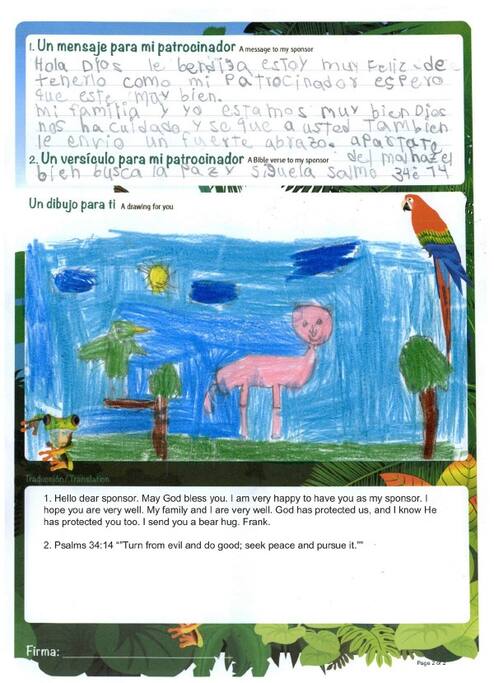 1. Un mensaje para mi patrocinador A message to my sponsor
Hola Dios le bendiga estoy muy Feliz de
tenerlo como mi Patrocinador espero
que este muy bien.
mi familia y yo estamos muy bien Dios
nos ha cuidado y se que a usted Tambien
le envio un fuerte abrazo. apartate
2. Un versículo para mi patrocinador A Bible verse to my sponsor del mal haz el
bien busca la Paz y siguela salmo 34:14
Un dibujo para ti A drawing for you
Traducción/Translation
1. Hello dear sponsor. May God bless you. I am very happy to have you as my sponsor. I
hope you are very well. My family and I are very well. God has protected us, and I know He
has protected you too. I send you a bear hug. Frank.
2. Psalms 34:14 “"Turn from evil and do good; seek peace and pursue it.””
Firma:
Page 2 of 2